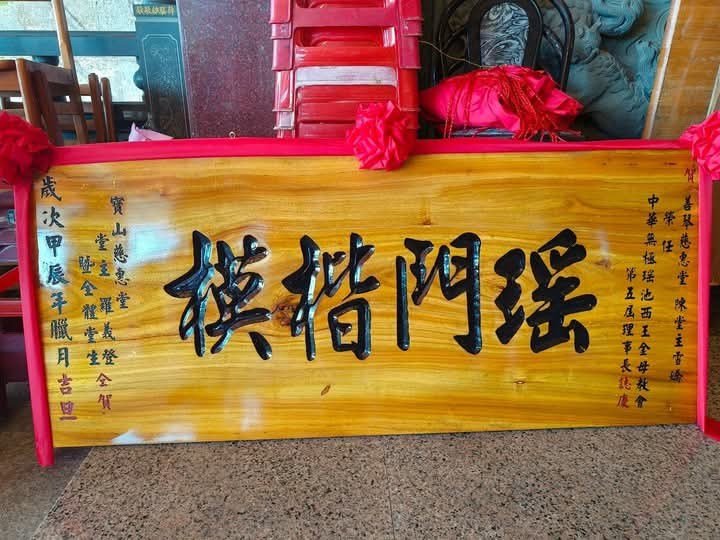 賀
善琴慈惠堂 陳堂主雪嬌
榮任
中華無極瑤池西王金母教會
第五屆理事長誌慶
瑤門楷模
寶山慈惠堂
堂主 羅義登
暨全體堂生
仝賀
歲次甲辰年臘月吉旦